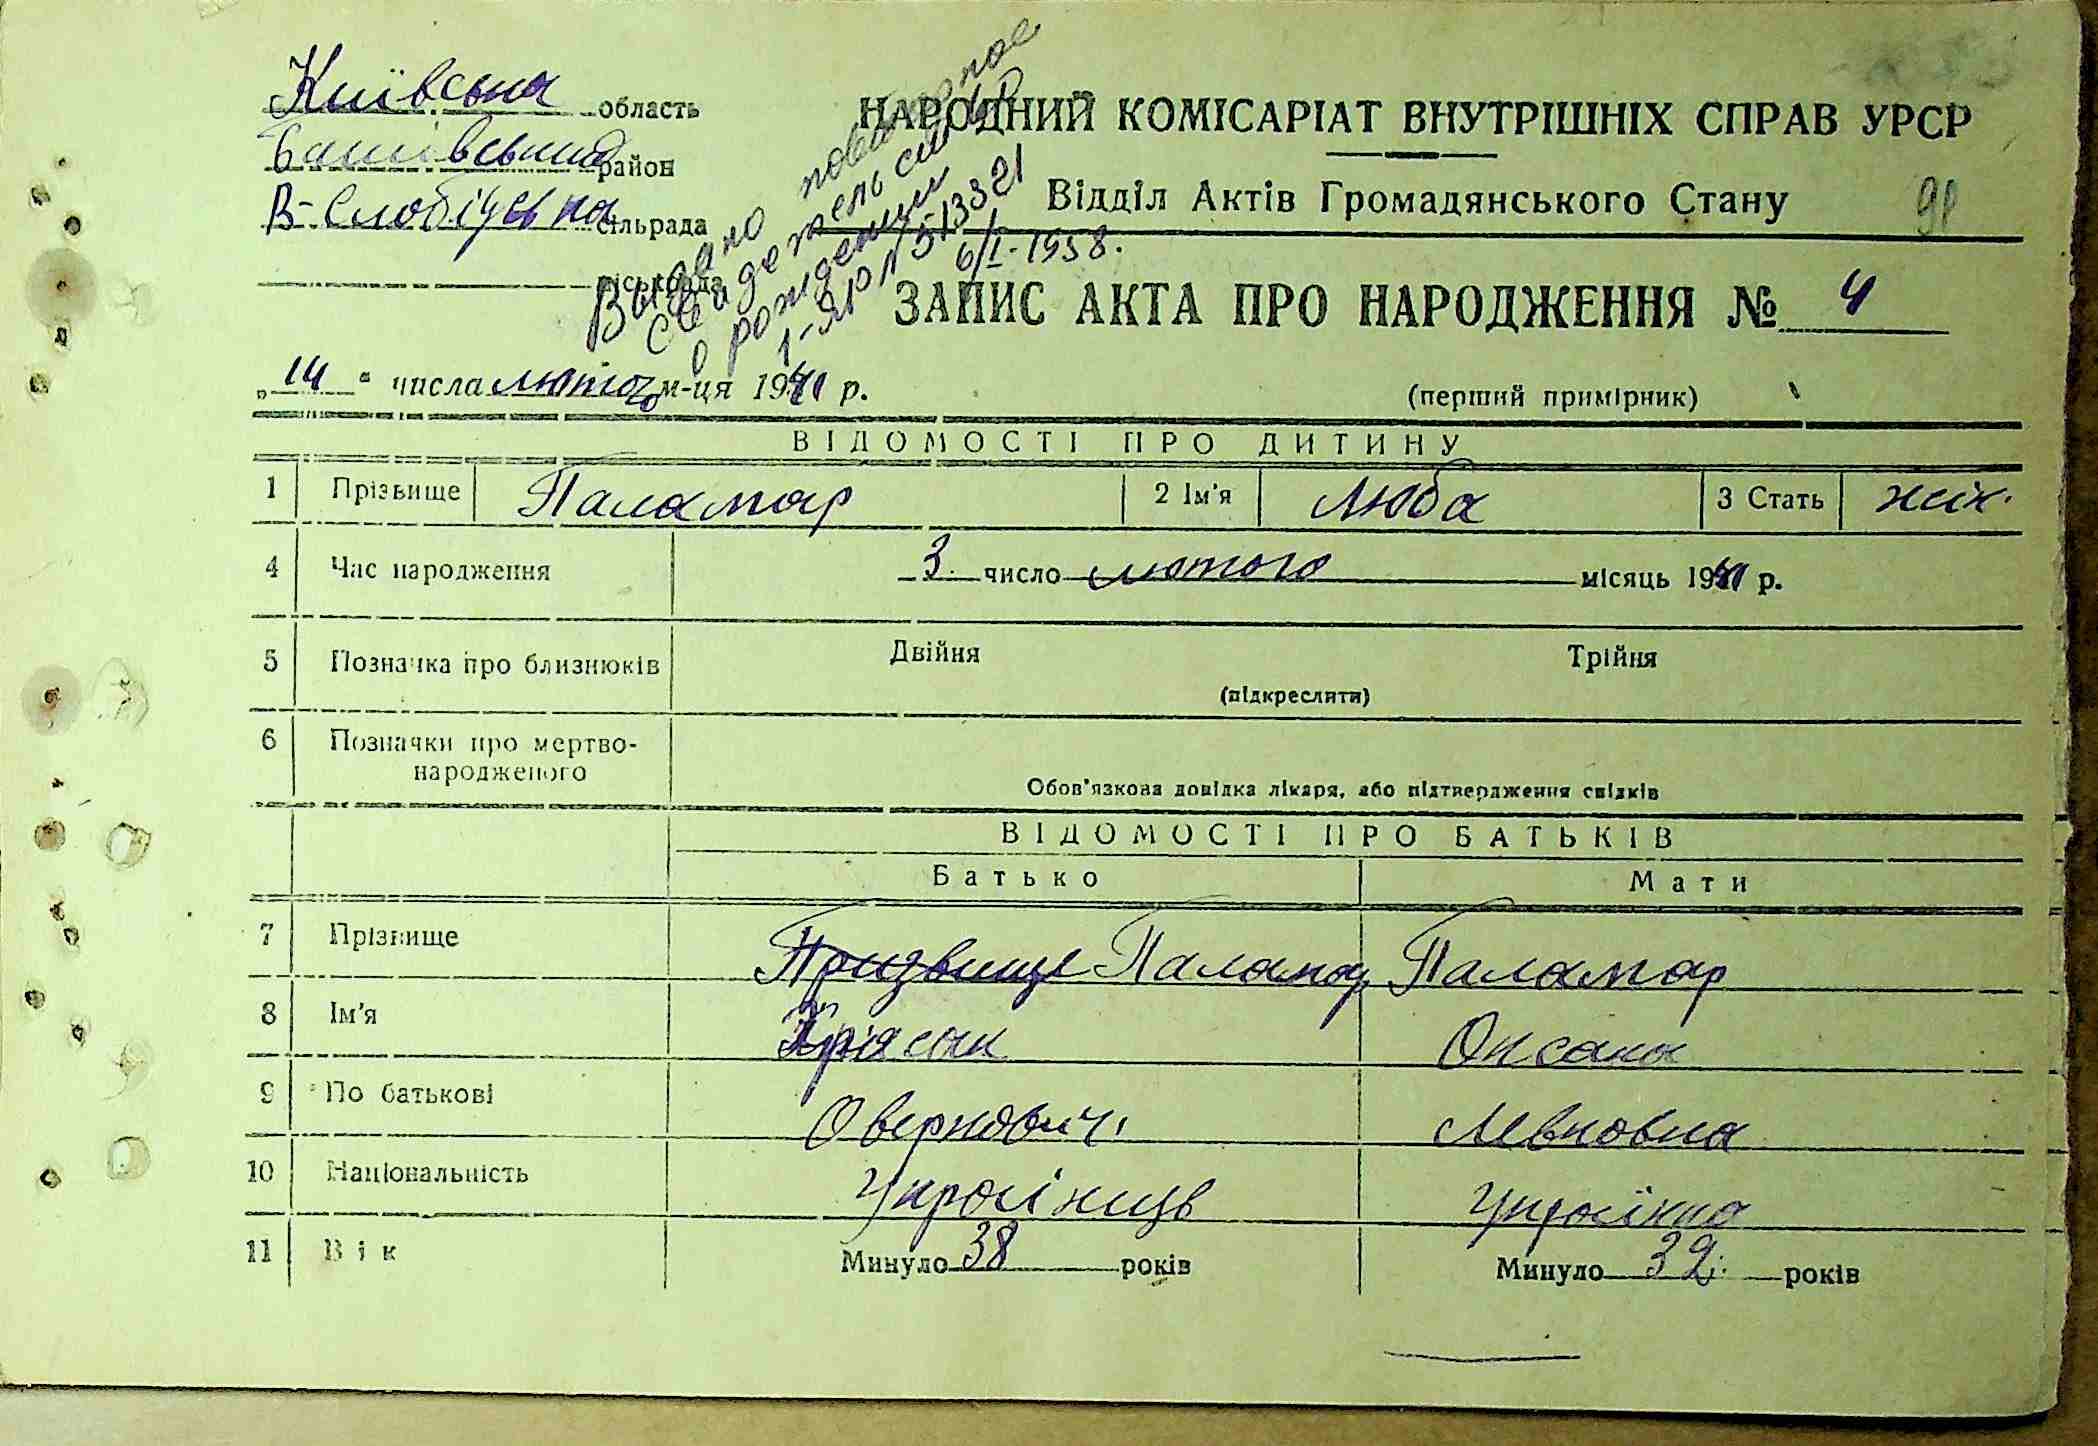 Київська область
НАРОДНИЙ КОМІСАРІАТ ВНУТРІШНІХ СПРАВ УРСР
район
В-Слобідська сільрада
Відділ Актів Громадянського Стану
91
міськрада
Выдано повторное
свидетельство
о рождении
1-ЯЮ № 513321
6/I-1958.
ЗАПИС АКТА ПРО НАРОДЖЕННЯ № 4
„14“ числа лютого м-ця 1941 р.
(перший примірник)
ВІДОМОСТІ ПРО ДИТИНУ
1 Прізвище Паламар 2 Ім'я Люба 3 Стать жін.
4 Час народження 3. число лютого місяць 1941 р.
5 Позначка про близнюків Двійня Трійня
(підкреслити)
6 Позначки про мертво-
народженого
Обов'язкова довідка лікаря, або підтвердження свідків
ВІДОМОСТІ ПРО БАТЬКІВ
Батько Мати
7 Прізвище Призвище Паламар Паламар
8 Ім'я Оксана
9 По батькові Оверкович Левковна
10 Національність Украінець Українка
11 Вік Минуло 38 років Минуло 32. років